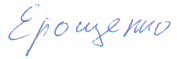 Ерощенко